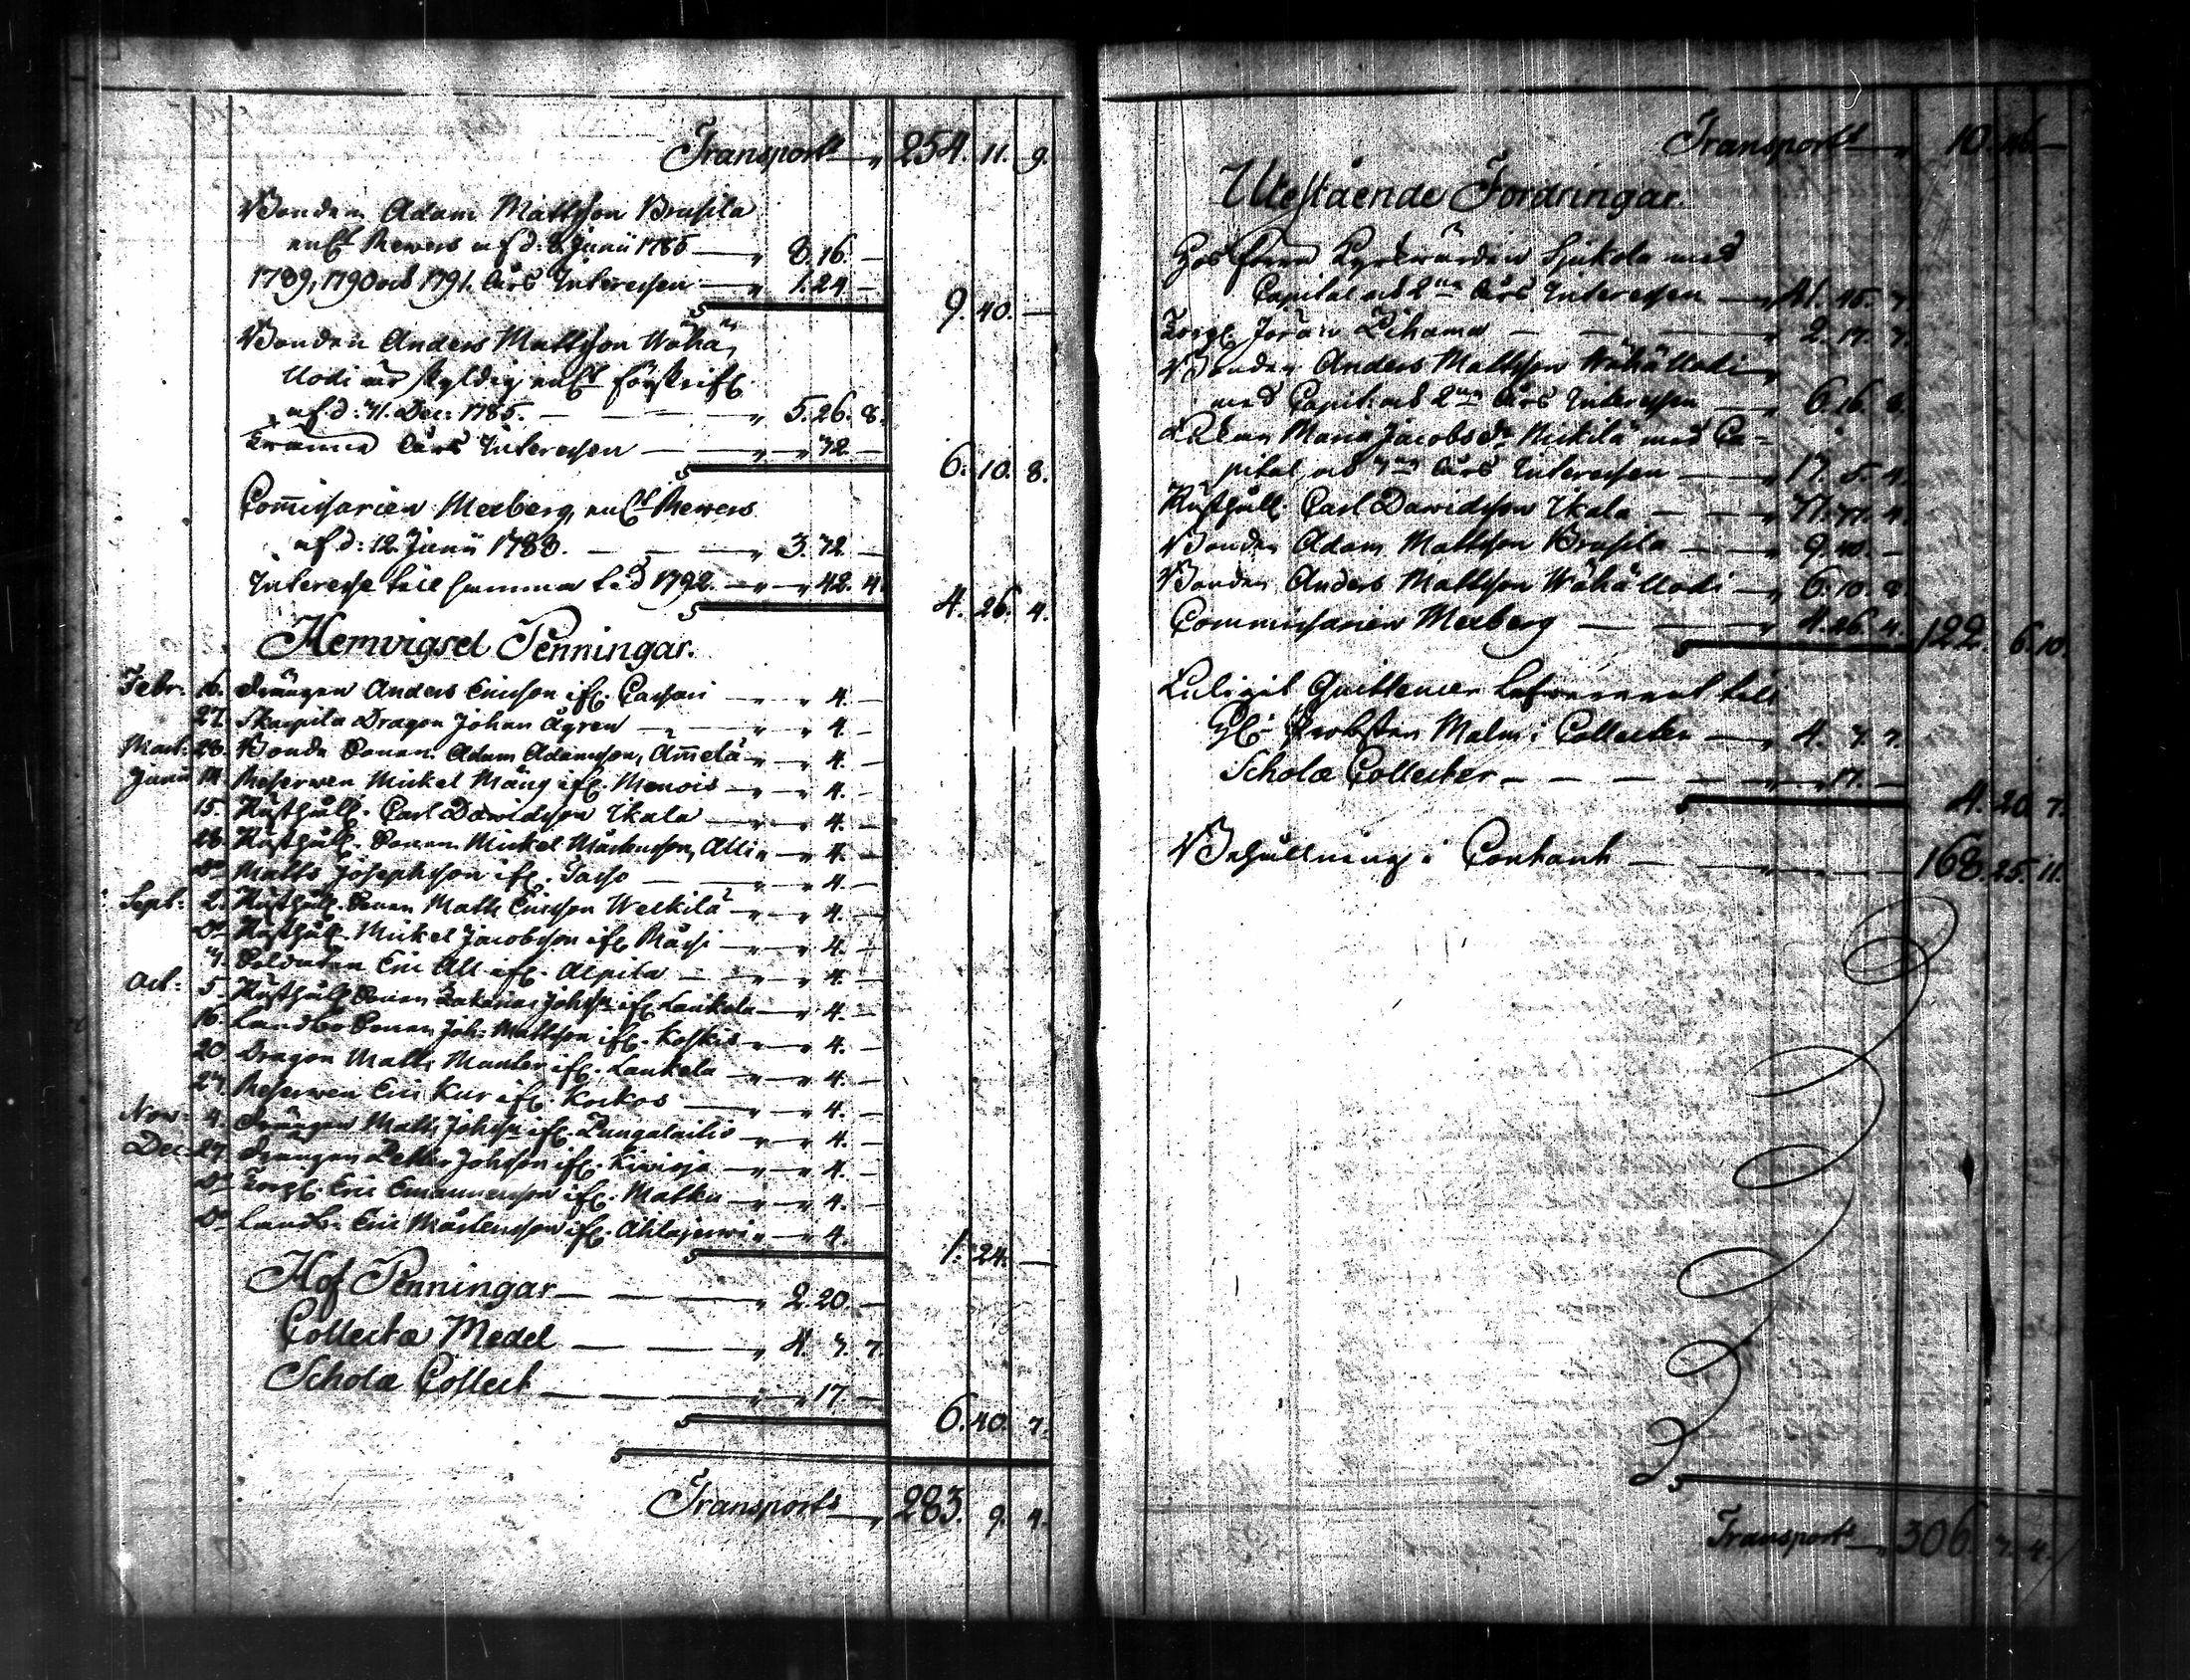 Transport 254. 11. 9.
Bonden Adam Mattsson Brusila
enl:t Revers af d: 8 Junii 1785 8. 16. —
1789, 1790 och 1791. Års Interessen 1. 24. —
9. 40. —
Bonden Anders Mattsson Wähä
Uodi är skyldig enl:t förskrifn.
af d: 11. Dec: 1785. 5. 26. 8.
Års Interessen 32. —
6. 10. 8.
Commissarien Merberg, enl:t Revers
af d: 12. Junii 1788. 3. 32. —
Interesse till samma tid 1792. 42. 4.
4. 26. 4.
Hemvigsel Penningar.
Febr: 16. Drängen Anders Ericsson ifr. 4. —
27. Skarpila Dragon Johan Ågren 4. —
Mart: 28. Bonde Sonen Adam Adamsson, Ammelä 4. —
Junii 14. Reserven Mickel Mång ifr. Menois 4. —
15. Rusthåll. Carl Davidsson Ikala 4. —
28. Rusthåll. Sonen Mickel Mårtensson, Alli 4. —
D:o Matts Josephsson ifr. Sasso 4. —
Sept: 2. Rusthåll. Sonen Matts Ericsson Werkilä 4. —
D:o Rusthåll. Mickel Jacobsson ifr. Mässi 4. —
Soldaten Eric All ifr. Alpila 4. —
Oct: 5. Rusthåll Sonen Zakarias Johsson ifr. Laukela 4. —
16. Landbo Sonen Joh: Mattsson ifr. Koskis 4. —
20. Dragon Matts Manter ifr. Laukela 4. —
Reserven Eric Kur ifr. Korkos 4. —
Nov: 4. Drängen Matts Johsson ifr. 4. —
Dec: 27. Drängen Petter Johsson ifr. Kivioja 4. —
D:o Torp. Eric Emanuelsson ifr. Matku 4. —
D:o Landb. Eric Mårtensson ifr. Ahlajervi 4. —
1. 24. —
Hof Penningar 2. 20. —
Collecte Medel 4. 3. 7.
Schola Collect 17. —
6. 40. 7.
Transport 283. 9. 4.
Transport 10.
Utestående Fordringar.
Hos förra Kyrkvärden Sjukola med
Capital och 2 Års Interessen 41. 45. 3.
Torp. Jöran Pihama 2. 17. 7.
Bonden Anders Mattsson Wähä Uodi
med Capit. och 2 Års Interessen 6. 16. 8.
Enkan Maria Jacobsd:r Nickilä med Ca-
pital och Års Interessen 17. 5. 4.
Rusthåll. Carl Davidsson Ikala
Bonden Adam Mattsson Brusila 9. 40. —
Bonden Anders Mattsson Wähä Uodi 6. 10. 8.
Commissarien Merberg 4. 26. 4. 122. 6. 10.
Enligit Quittencer Lefvererat till
Hr Probsten Malm i Collecter 4. 3. 7.
Schola Collecter 17. —
4. 20. 7.
Behållning i Contant 168. 25. 11.
Transport 306. 4.